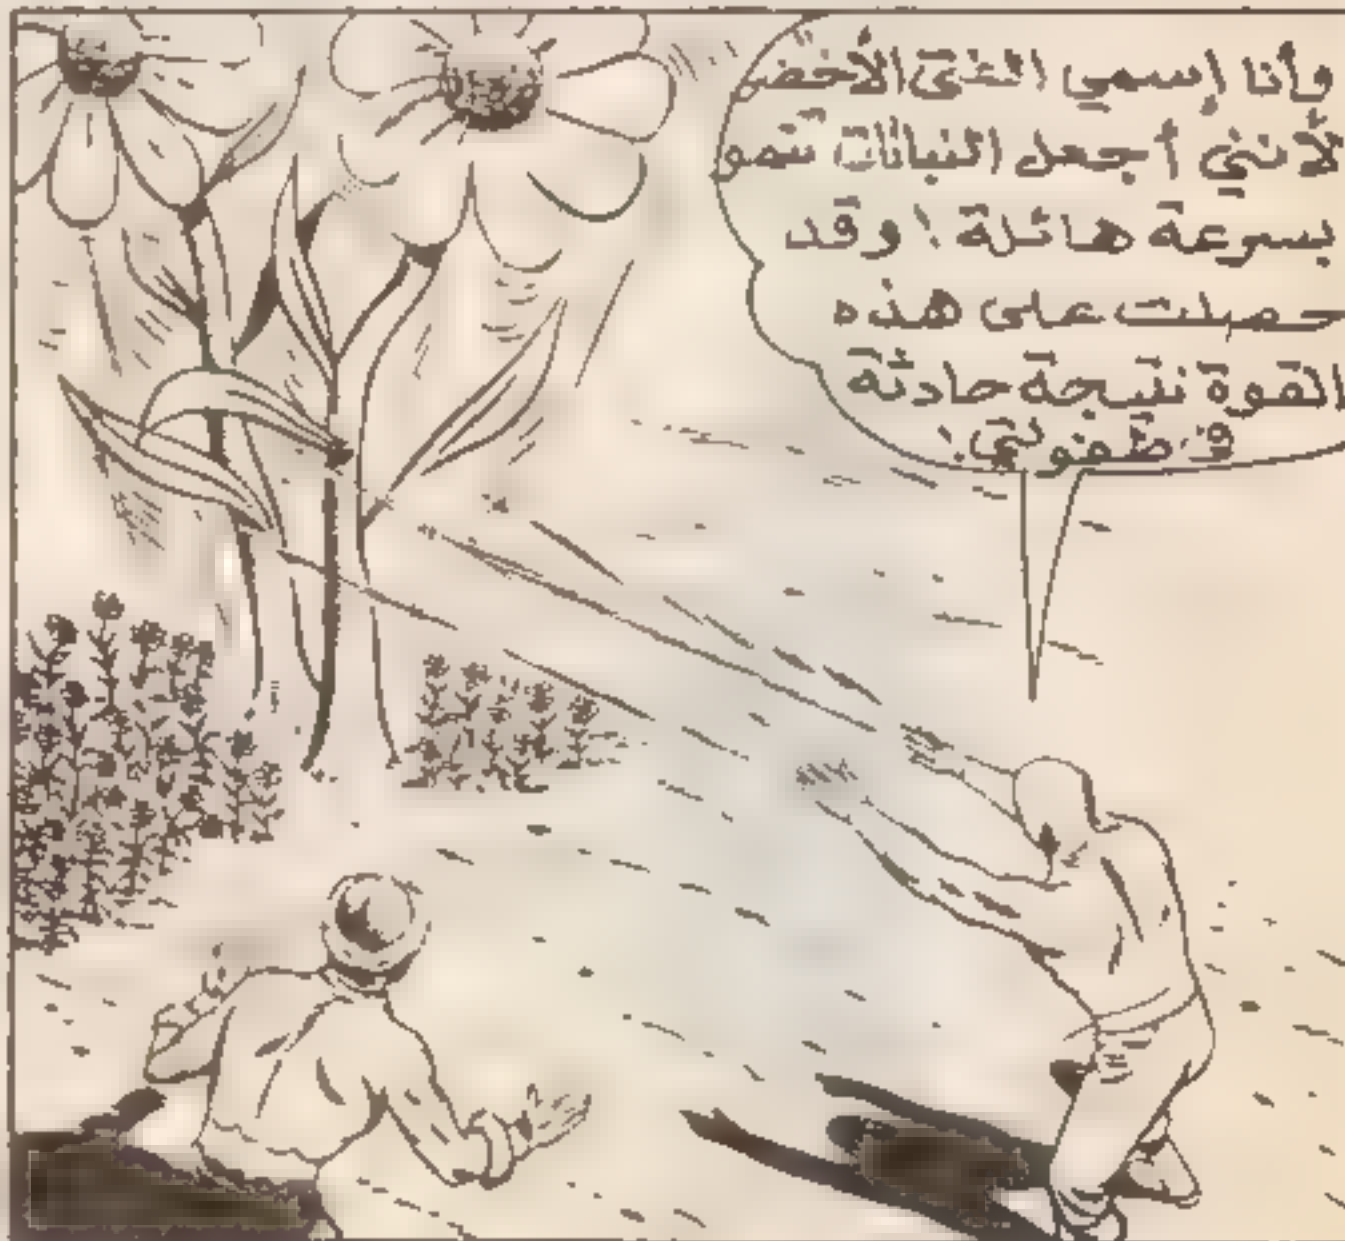 وأنا إسمي الفتى الأخضر
لأنني أجعل النباتات تنمو
بسرعة هائلة ! وقد
حصلت على هذه
القوة نتيجة حادثة
في طفولتي !